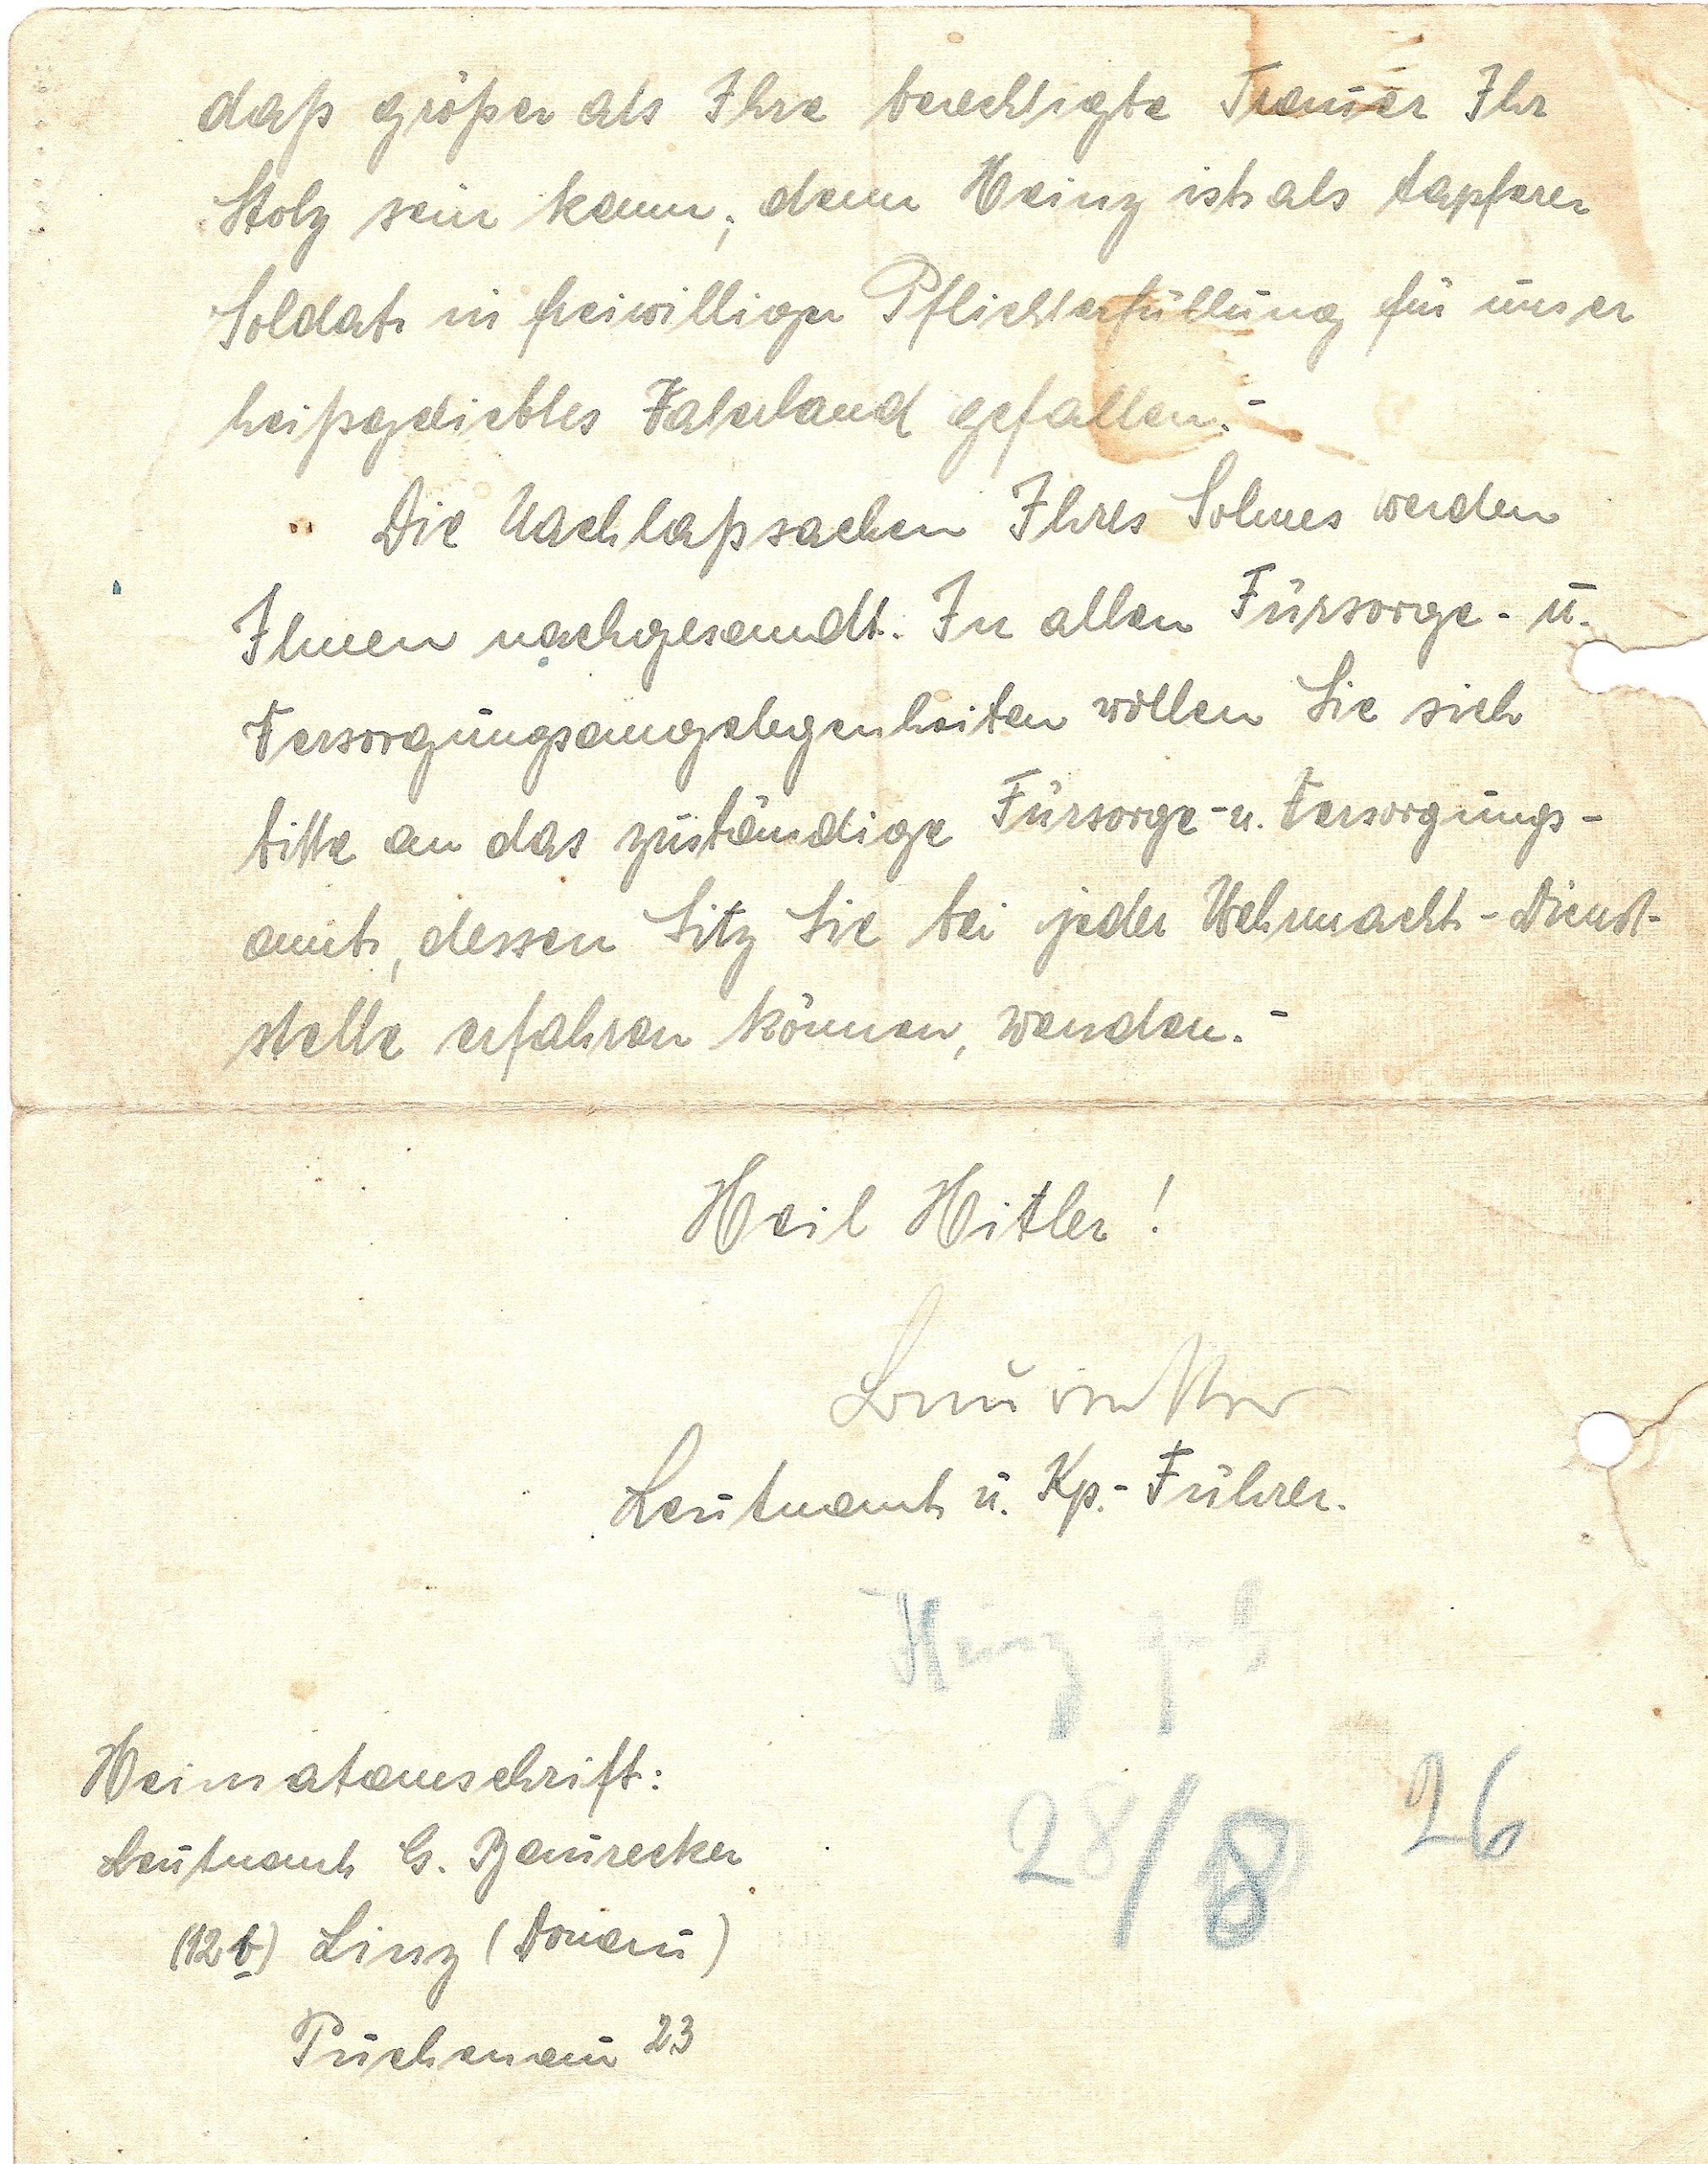 daß größer als Ihre berechtigte Trauer Ihr
Stolz sein kann; denn Heinz ist als tapferer
Soldat in freiwilliger Pflichterfüllung für unser
heißgeliebtes Vaterland gefallen.-
Die Nachlaßsachen Ihres Sohnes werden
Ihnen nachgesandt. In allen Fürsorge- u.
Versorgungsangelegenheiten wollen Sie sich
bitte an das zuständige Fürsorge- u. Versorgungs-
amt, dessen Sitz Sie bei jeder Wehrmacht-Dienst-
stelle erfahren können, wenden.-
Heil Hitler!
Leutnant u. Kp.-Führer.
Heinz geb
28/8 26
Heimatanschrift:
Leutnant G.
(12b) Linz (Donau)
Puchenau 23